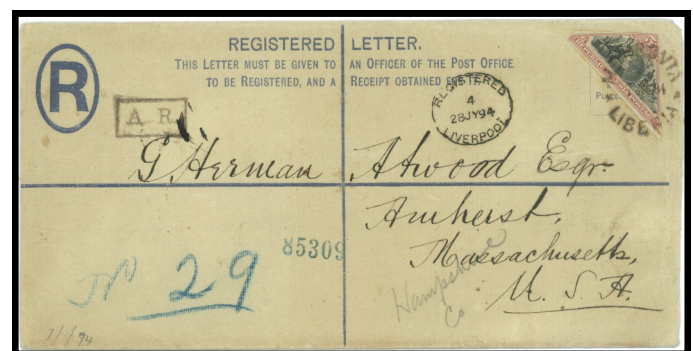 REGISTERED LETTER.
THIS LETTER MUST BE GIVEN TO AN OFFICER OF THE POST OFFICE
TO BE REGISTERED, AND A RECEIPT OBTAINED
R
A. R.
REGISTERED
4
28JY94
LIVERPOOL
G. Herman Atwood Esqr.
Amherst,
Massachusetts,
U. S. A.
Hampshire
Co
85309
No 29
7/1/94